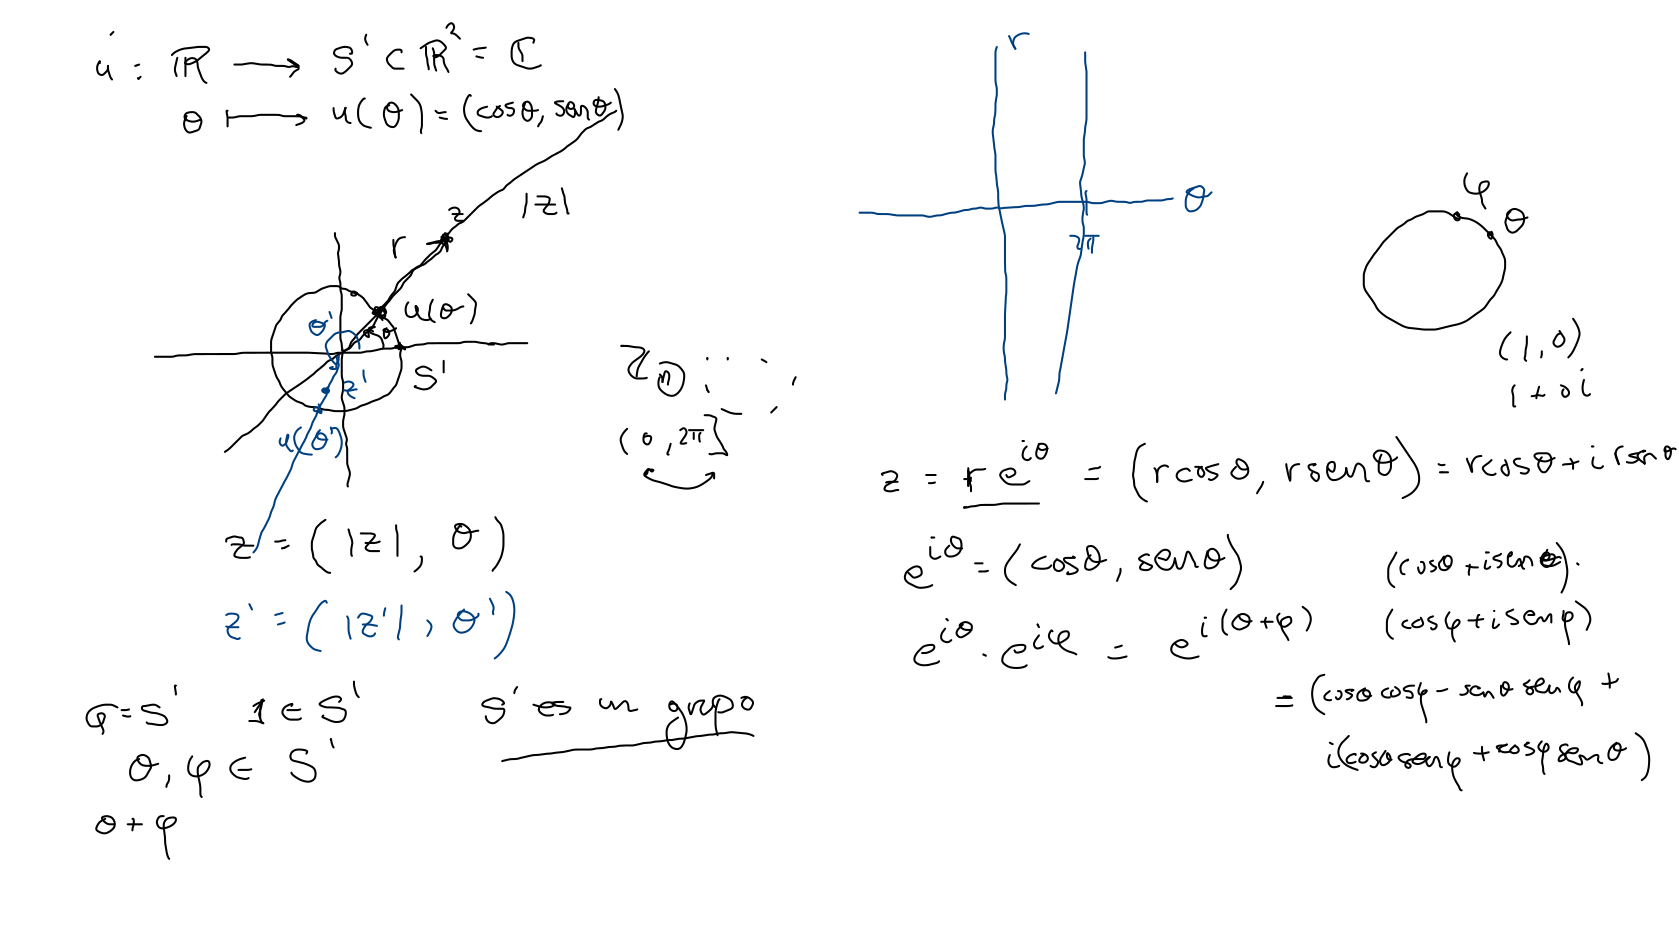 u : ℝ ⟶ S¹ ⊂ ℝ² = ℂ
θ ⟼ u(θ) = (cosθ, senθ)
|z|
z
r
u(θ)
θ
θ'
S¹
z'
u(θ')
z = (|z|, θ)
z' = (|z'|, θ')
G = S¹ 1 ∈ S¹ S¹ es un grupo
θ, φ ∈ S¹
θ + φ
ℤn
(0, 2π]
r
θ
2π
φ
θ
(1, 0)
1 + 0i
z = r e^{iθ} = (r cosθ, r senθ) = r cosθ + i r senθ
e^{iθ} = (cosθ, senθ)
e^{iθ} · e^{iφ} = e^{i(θ+φ)}
(cosθ + i senθ) ·
(cosφ + i senφ)
= (cosθ cosφ - senθ senφ +
i(cosθ senφ + cosφ senθ)